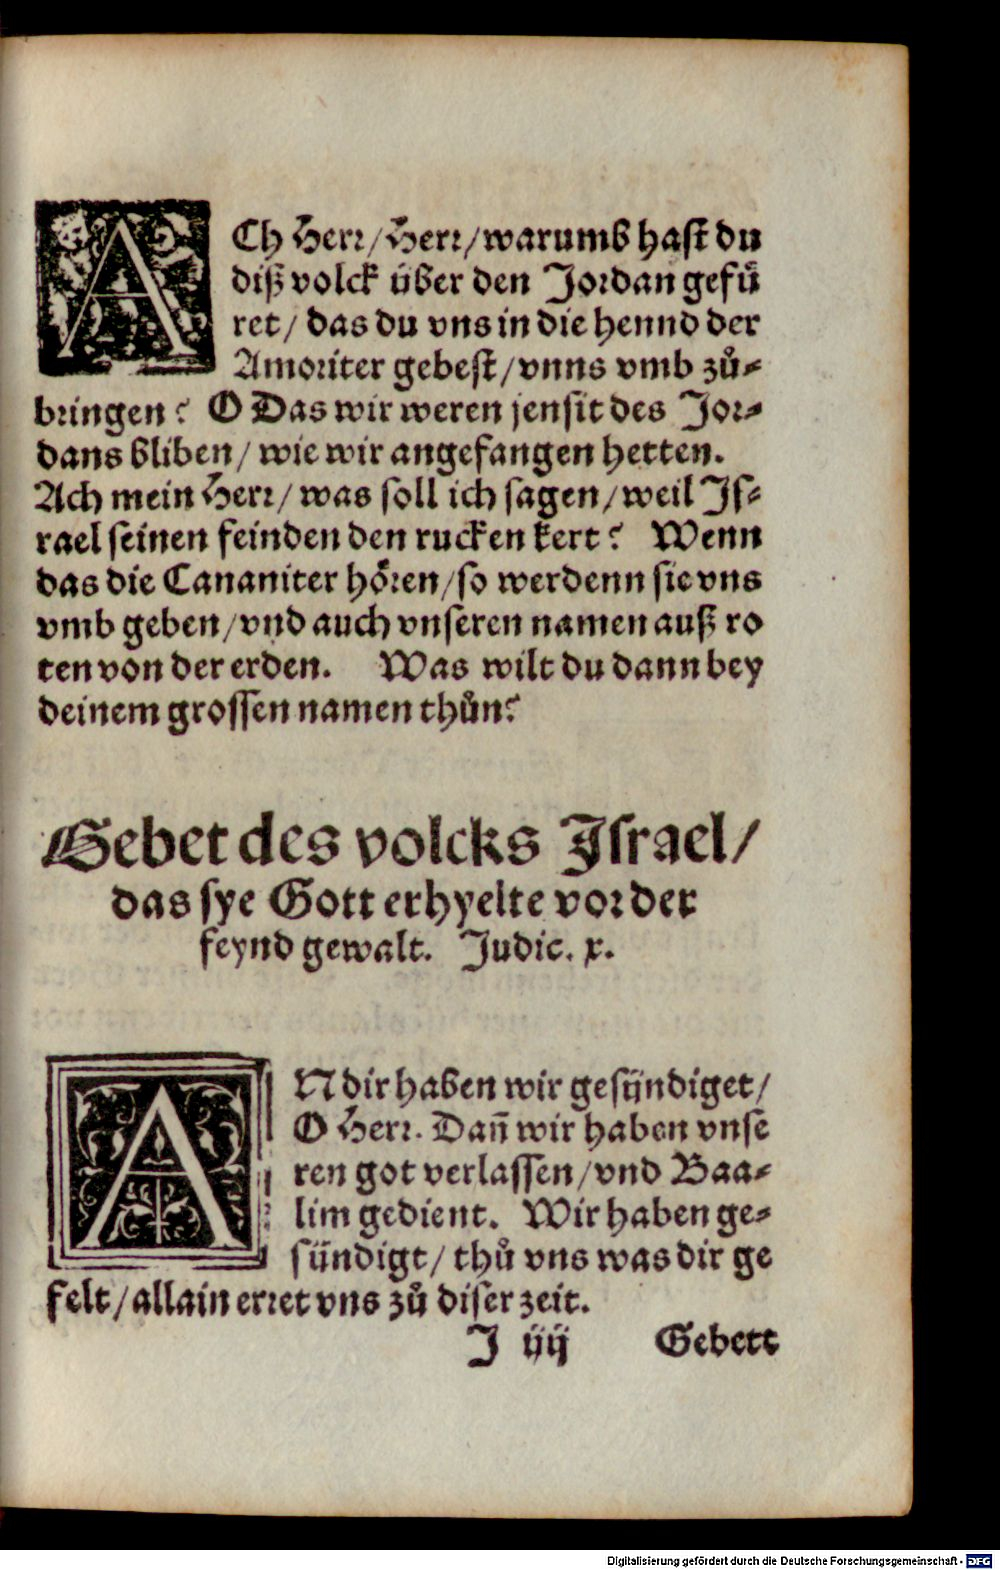 ACh Herr/Herr/warumb hast du
diß volck über den Jordan gefü
ret/ das du vns in die hennd der
Amoriter gebest/vnns vmb zů-
bringen? O Das wir weren jensit des Jor-
dans bliben/ wie wir angefangen hetten.
Ach mein Herr/ was soll ich sagen/weil Is-
rael seinen feinden den rucken kert? Wenn
das die Cananiter hören/so werdenn sie vns
vmb geben/vnd auch vnseren namen auß ro
ten von der erden. Was wilt du dann bey
deinem grossen namen thůn?
Gebet des volcks Israel/
das sye Gott erhyelte vor der
feynd gewalt. Judic. x.
AN dir haben wir gesündiget/
O Herr. Dañ wir haben vnse
ren got verlassen/vnd Baa-
lim gedient. Wir haben ge-
sündigt/ thů vns was dir ge
felt/allain erret vns zů diser zeit.
J iij Gebett
Digitalisierung gefördert durch die Deutsche Forschungsgemeinschaft - DFG